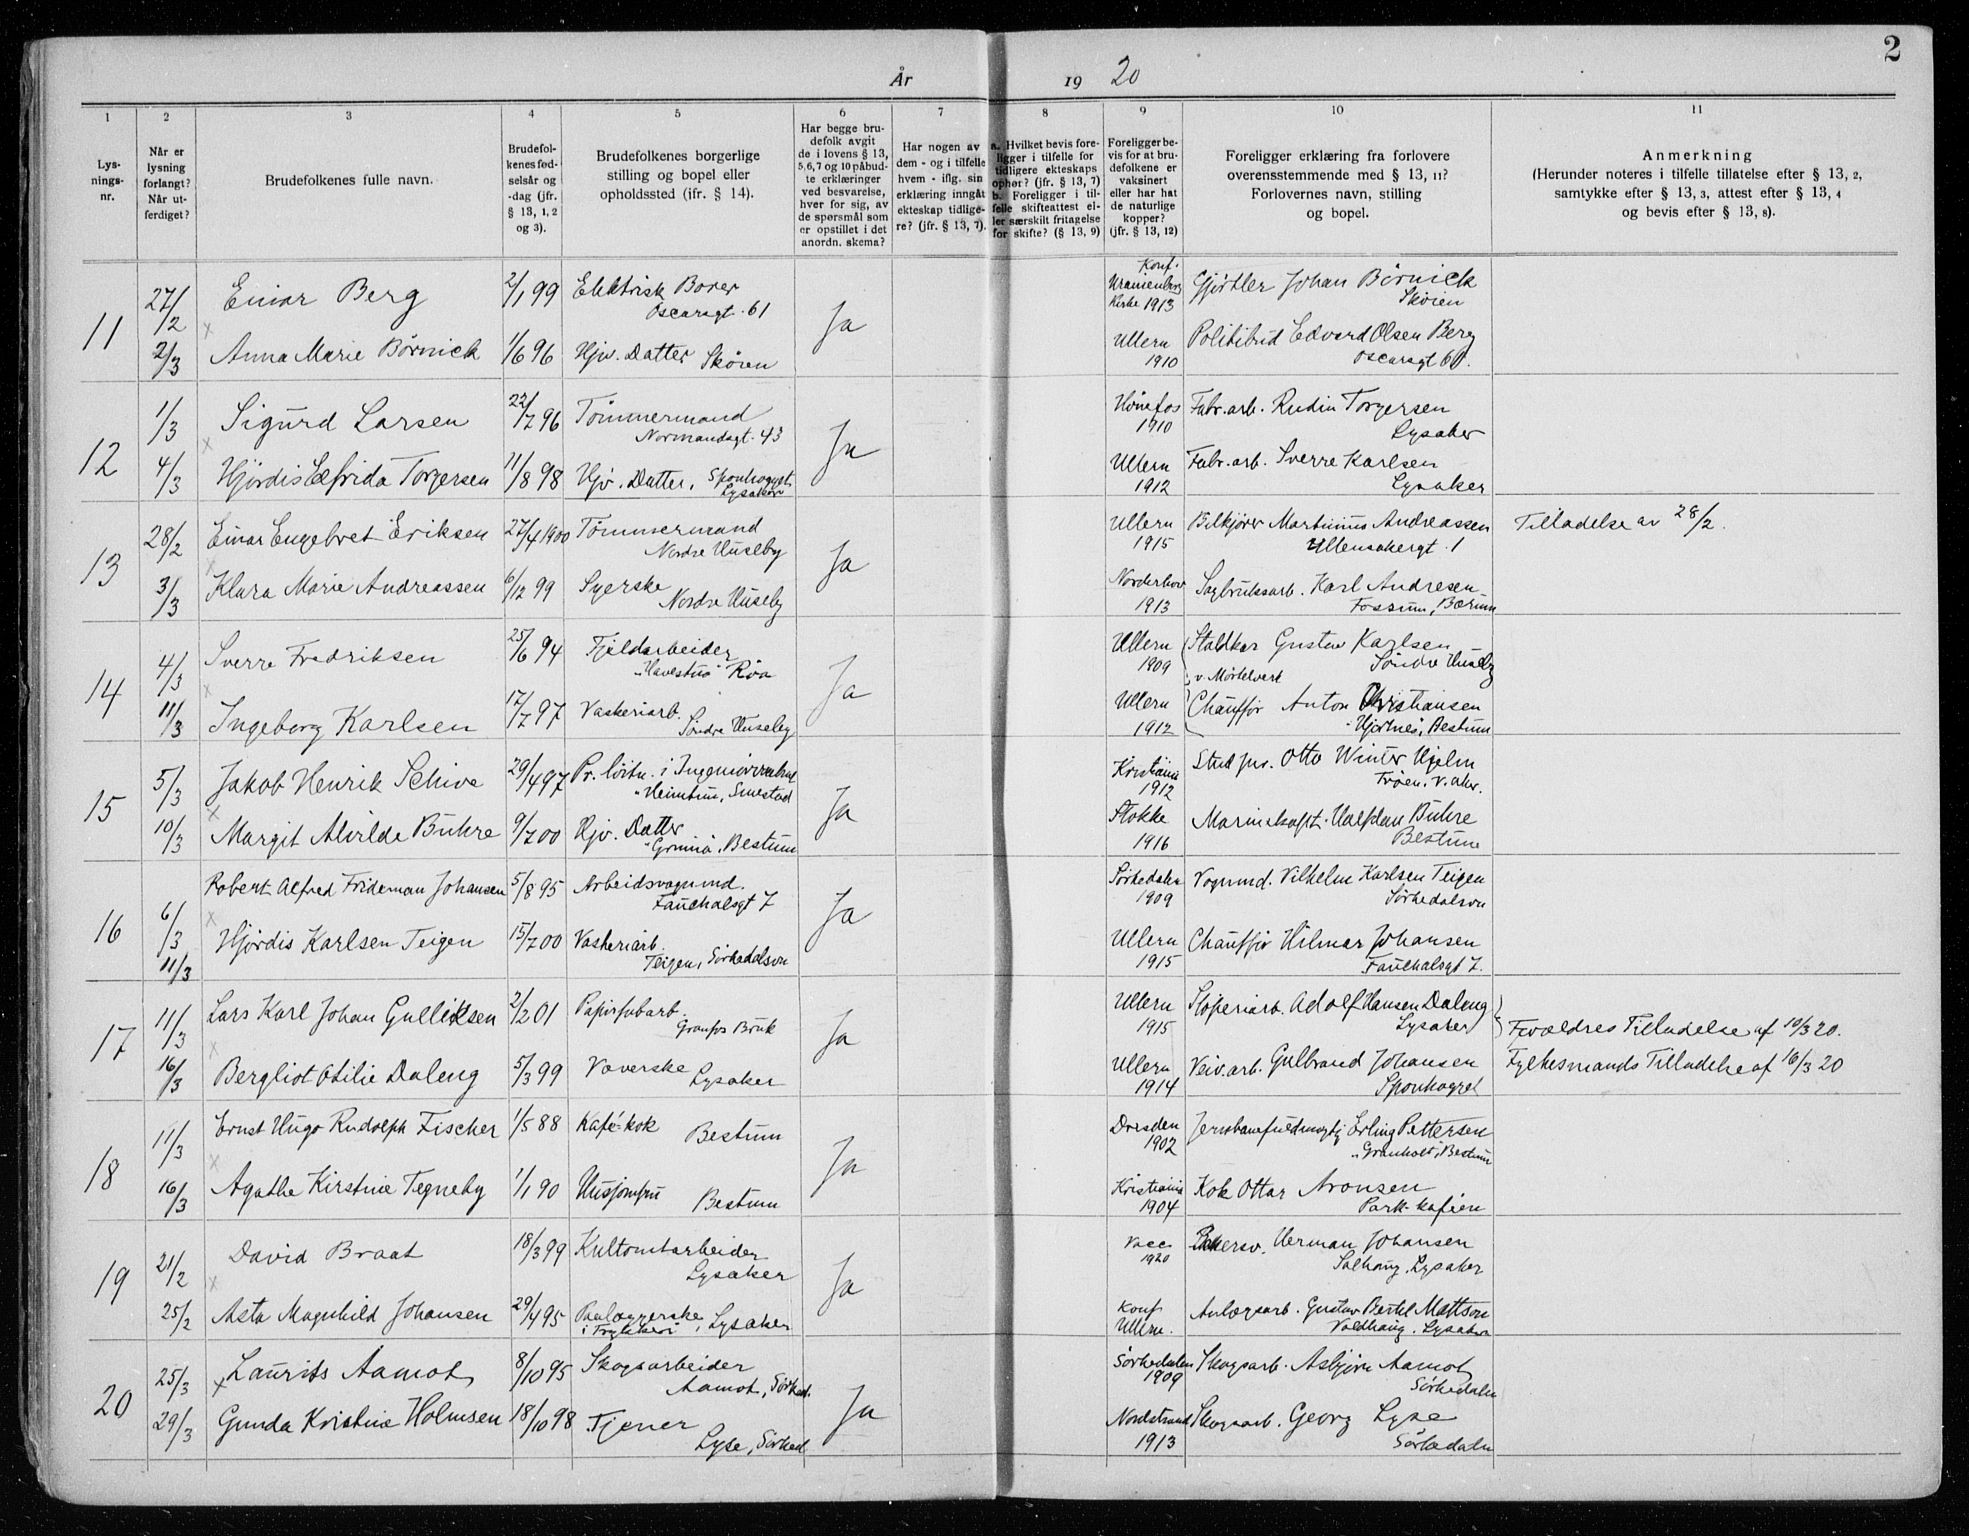 2
År 1920
1 2 3 4 5 6 7 8 9 10 11
Lys-
nings-
nr.
Når er
lysning
forlangt?
Når ut-
ferdiget?
Brudefolkenes fulle navn.
Brudefol-
kenes fød-
selsår og
-dag (jfr.
§ 13, 1, 2
og 3).
Brudefolkenes borgerlige
stilling og bopel eller
opholdssted (jfr. § 14).
Har begge bru-
defolk avgit
de i lovens § 13,
5,6,7 og 10 påbud-
te erklæringer
ved besvarelse,
hver for sig, av
de spørsmål som
er opstillet i det
anordn. skema?
Har nogen av
dem - og i tilfelle
hvem - iflg. sin
erklæring inngåt
ekteskap tidlige-
re? (jfr. § 13, 7).
a. Hvilket bevis fore-
ligger i tilfelle for
tidligere ekteskaps
ophør? (jfr. § 13, 7)
b. Foreligger i til-
felle skifteattest el-
ler særskilt fritagelse
for skifte? (§ 13, 9)
Foreligger be-
vis for at bru-
defolkene er
vaksinert
eller har hat
de naturlige
kopper?
(jfr. § 13, 12)
Foreligger erklæring fra forlovere
overensstemmende med § 13, 11?
Forlovernes navn, stilling
og bopel.
Anmerkning
(Herunder noteres i tilfelle tillatelse efter § 13, 2,
samtykke efter § 13, 3, attest efter § 13, 4
og bevis efter § 13, 8).
11 27/2 Einar Berg 2/1 99 Elektrisk Borer Ja Konf. Uranienborg Kirke 1913 Gjørtler Johan Børnick
Oscarsgt. 61 Skøien
2/3 Anna Marie Børnick 1/6 96 Hjv. Datter Skøien Ullern 1910 Politibud Edvard Olsen Berg
Oscarsgt 61.
12 1/3 Sigurd Larsen 22/7 96 Tømmermand Ja Hønefos 1910 Fabr.arb. Rudin Torgersen
Normandsgt. 43 Lysaker
4/3 Hjørdis Elfrida Torgersen 11/8 98 Hjv. Datter, Lysaker Ullern 1912 Fabr.arb. Sverre Karlsen
Lysaker
13 28/2 Einar Engebret Eriksen 27/4 1900 Tømmermand Ja Ullern 1915 Bilkjører Martinus Andreassen Tilladelse av 28/2.
Nordre Huseby Ullensakergt. 1
3/3 Klara Marie Andreassen 6/12 99 Syerske Norderhov 1913 Sagbruksarb. Karl Andresen
Nordre Huseby Fossum, Bærum
14 4/3 Sverre Fredriksen 25/6 94 Fjeldarbeider Ja Ullern 1909 Staldkar Gustav Karlsen
"Havestuo" Røa Søndre Huseby
v. Mørtelverk
11/3 Ingeborg Karlsen 17/7 97 Vaskeriarb. Ullern 1912 Chauffør Anton Christiansen
Søndre Huseby "Hjortnes", Bestum
15 5/3 Jakob Henrik Schive 29/4 97 Pr. løitn. i Ja Kristiania 1912 Stud jur. Otto Winter Hjelm
"Heimtun, Smestad Trøen, V. Aker.
10/3 Margit Alvilde Buhre 9/7 00 Hjv. Datter Stokke 1916 Marinekapt. Halfdan Buhre
Bestum Bestum
16 6/3 Robert Alfred Frideman Johansen 5/8 95 Arbeidsvognmd. Ja Sørkedalen 1909 Vognmd. Vilhelm Karlsen Teigen
Fauchalsgt 7 Sørkedalsvn
11/3 Hjørdis Karlsen Teigen 15/7 00 Vaskeriarb. Ullern 1915 Chauffør Hilmar Johansen
Teigen, Sørkedalsvn Fauchalsgt 7.
17 11/3 Lars Karl Johan Gulliksen 2/2 01 Papirfabarb. Ja Ullern 1915 Støperiarb. Adolf Hansen Daleng
Granfos Bruk Lysaker Forældres Tilladelse af 10/3 20.
16/3 Bergliot Otilie Daleng 5/3 99 Væverske Lysaker Ullern 1914 Veiv.arb. Gulbrand Johansen Fylkesmands Tilladelse af 16/3 20
18 11/3 Ernst Hugo Rudolph Fischer 1/5 88 Kafé-kok Bestum Ja Dresden 1902 Jernbanefuldmægtig Erling Pettersen
"Granholt", Bestum
16/3 Agathe Kirstine Tegneby 1/1 90 Husjomfru Bestum Kristiania 1904 Kok Ottar Aronsen
Park-kaféen
19 21/2 David Braat 18/3 99 Kultomtarbeider Ja Vacc 1920 Herman Johansen
Lysaker Solhaug, Lysaker
25/2 Asta Magnhild Johansen 29/4 95 Paalæggerske Konf Ullern. Anlægsarb. Gustav Bertil Mattson
i Trykkeri, Lysaker Voldhaug. Lysaker
20 25/3 Laurits Aamot 8/10 95 Skogsarbeider Ja Sørkedalen 1909 Skogsarb. Asbjørn Aamot
Aamot, Sørked. Sørkedalen
29/3 Gunda Kristine Holmsen 18/10 98 Tjener Nordstrand 1913 Skogsarb. Georg Lyse
Lyse, Sørked. Sørkedalen